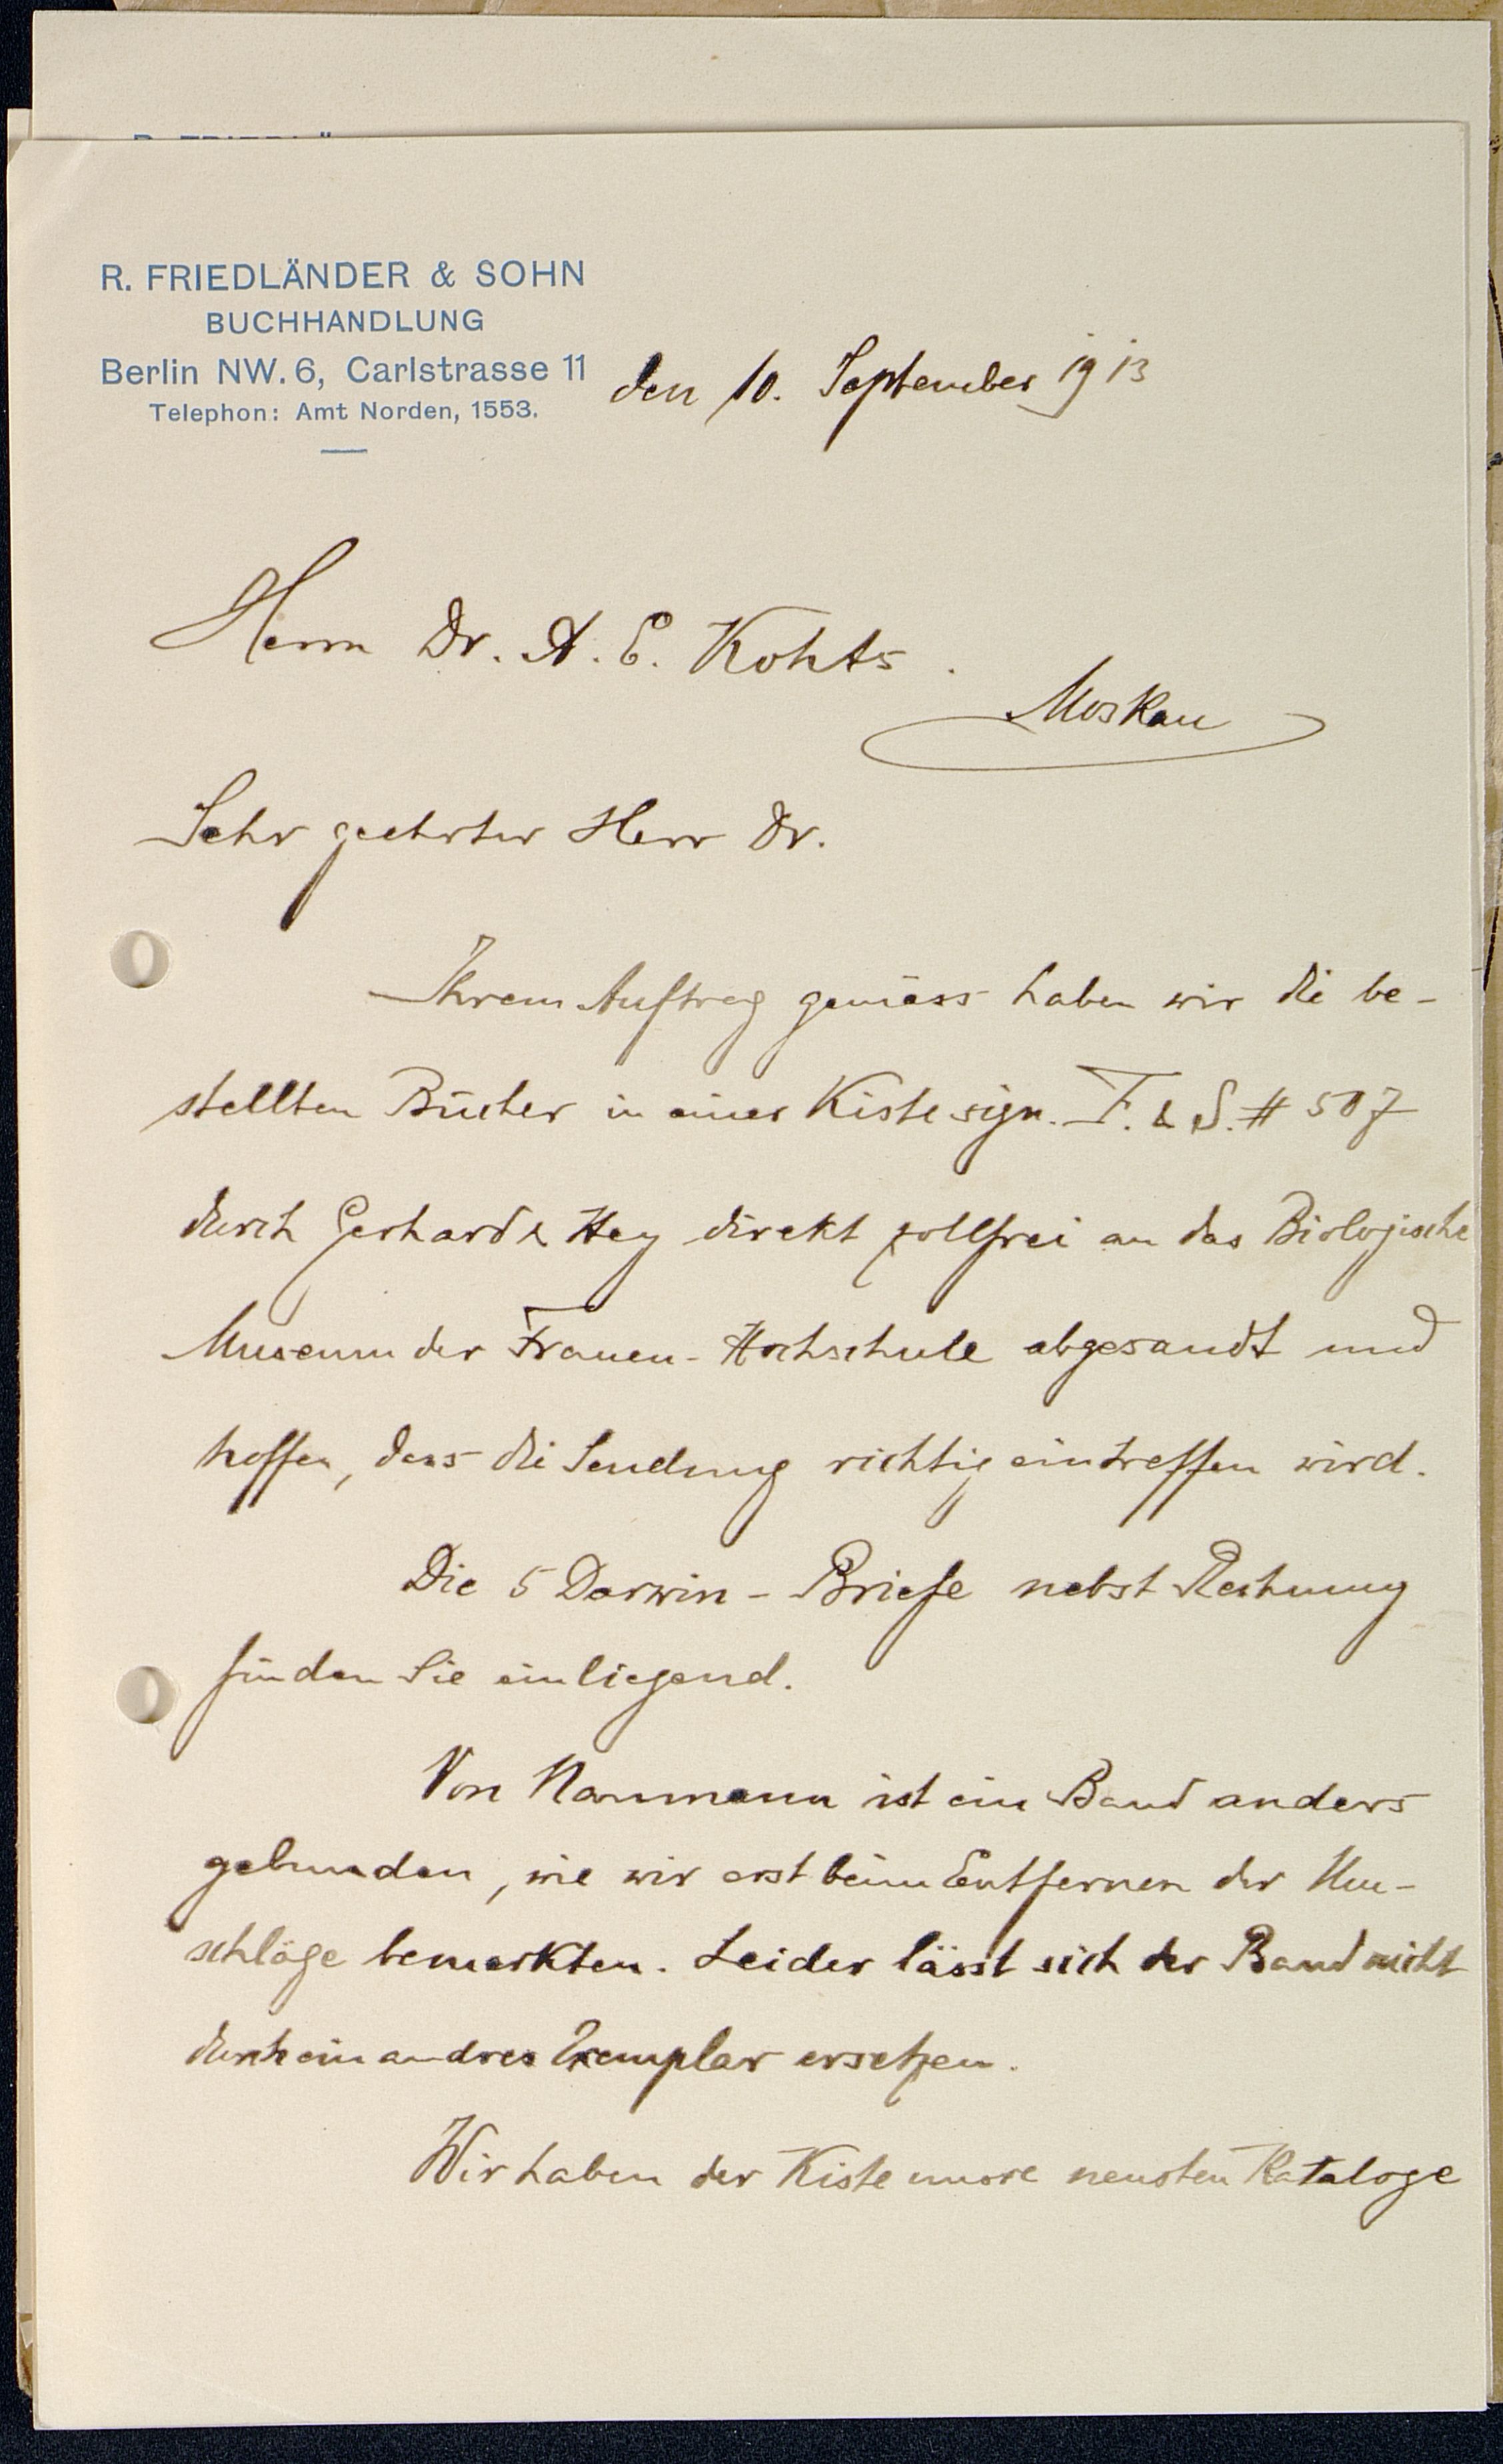 R. FRIEDLÄNDER & SOHN
BUCHHANDLUNG
Berlin NW. 6, Carlstrasse 11
Telephon: Amt Norden, 1553.
den 10. September 1913
Herrn Dr. A. E. Kohts.
Moskau
Sehr geehrter Herr Dr.
Ihrem Auftrag gemäss haben wir die be-
stellten Bücher in einer Kiste sign. F. & S. # 507
durch Gerhard & Hey direkt zollfrei an das Biologische
Museum der Frauen-Hochschule abgesandt und
hoffen, dass die Sendung richtig eintreffen wird.
Die 5 Darwin-Briefe nebst Rechnung
finden Sie einliegend.
Von Naumann ist ein Band anders
gebunden, wie wir erst beim Entfernen der Um-
schläge bemerkten. Leider lässt sich der Band nicht
durch ein andres Exemplar ersetzen.
Wir haben der Kiste unsre neusten Kataloge